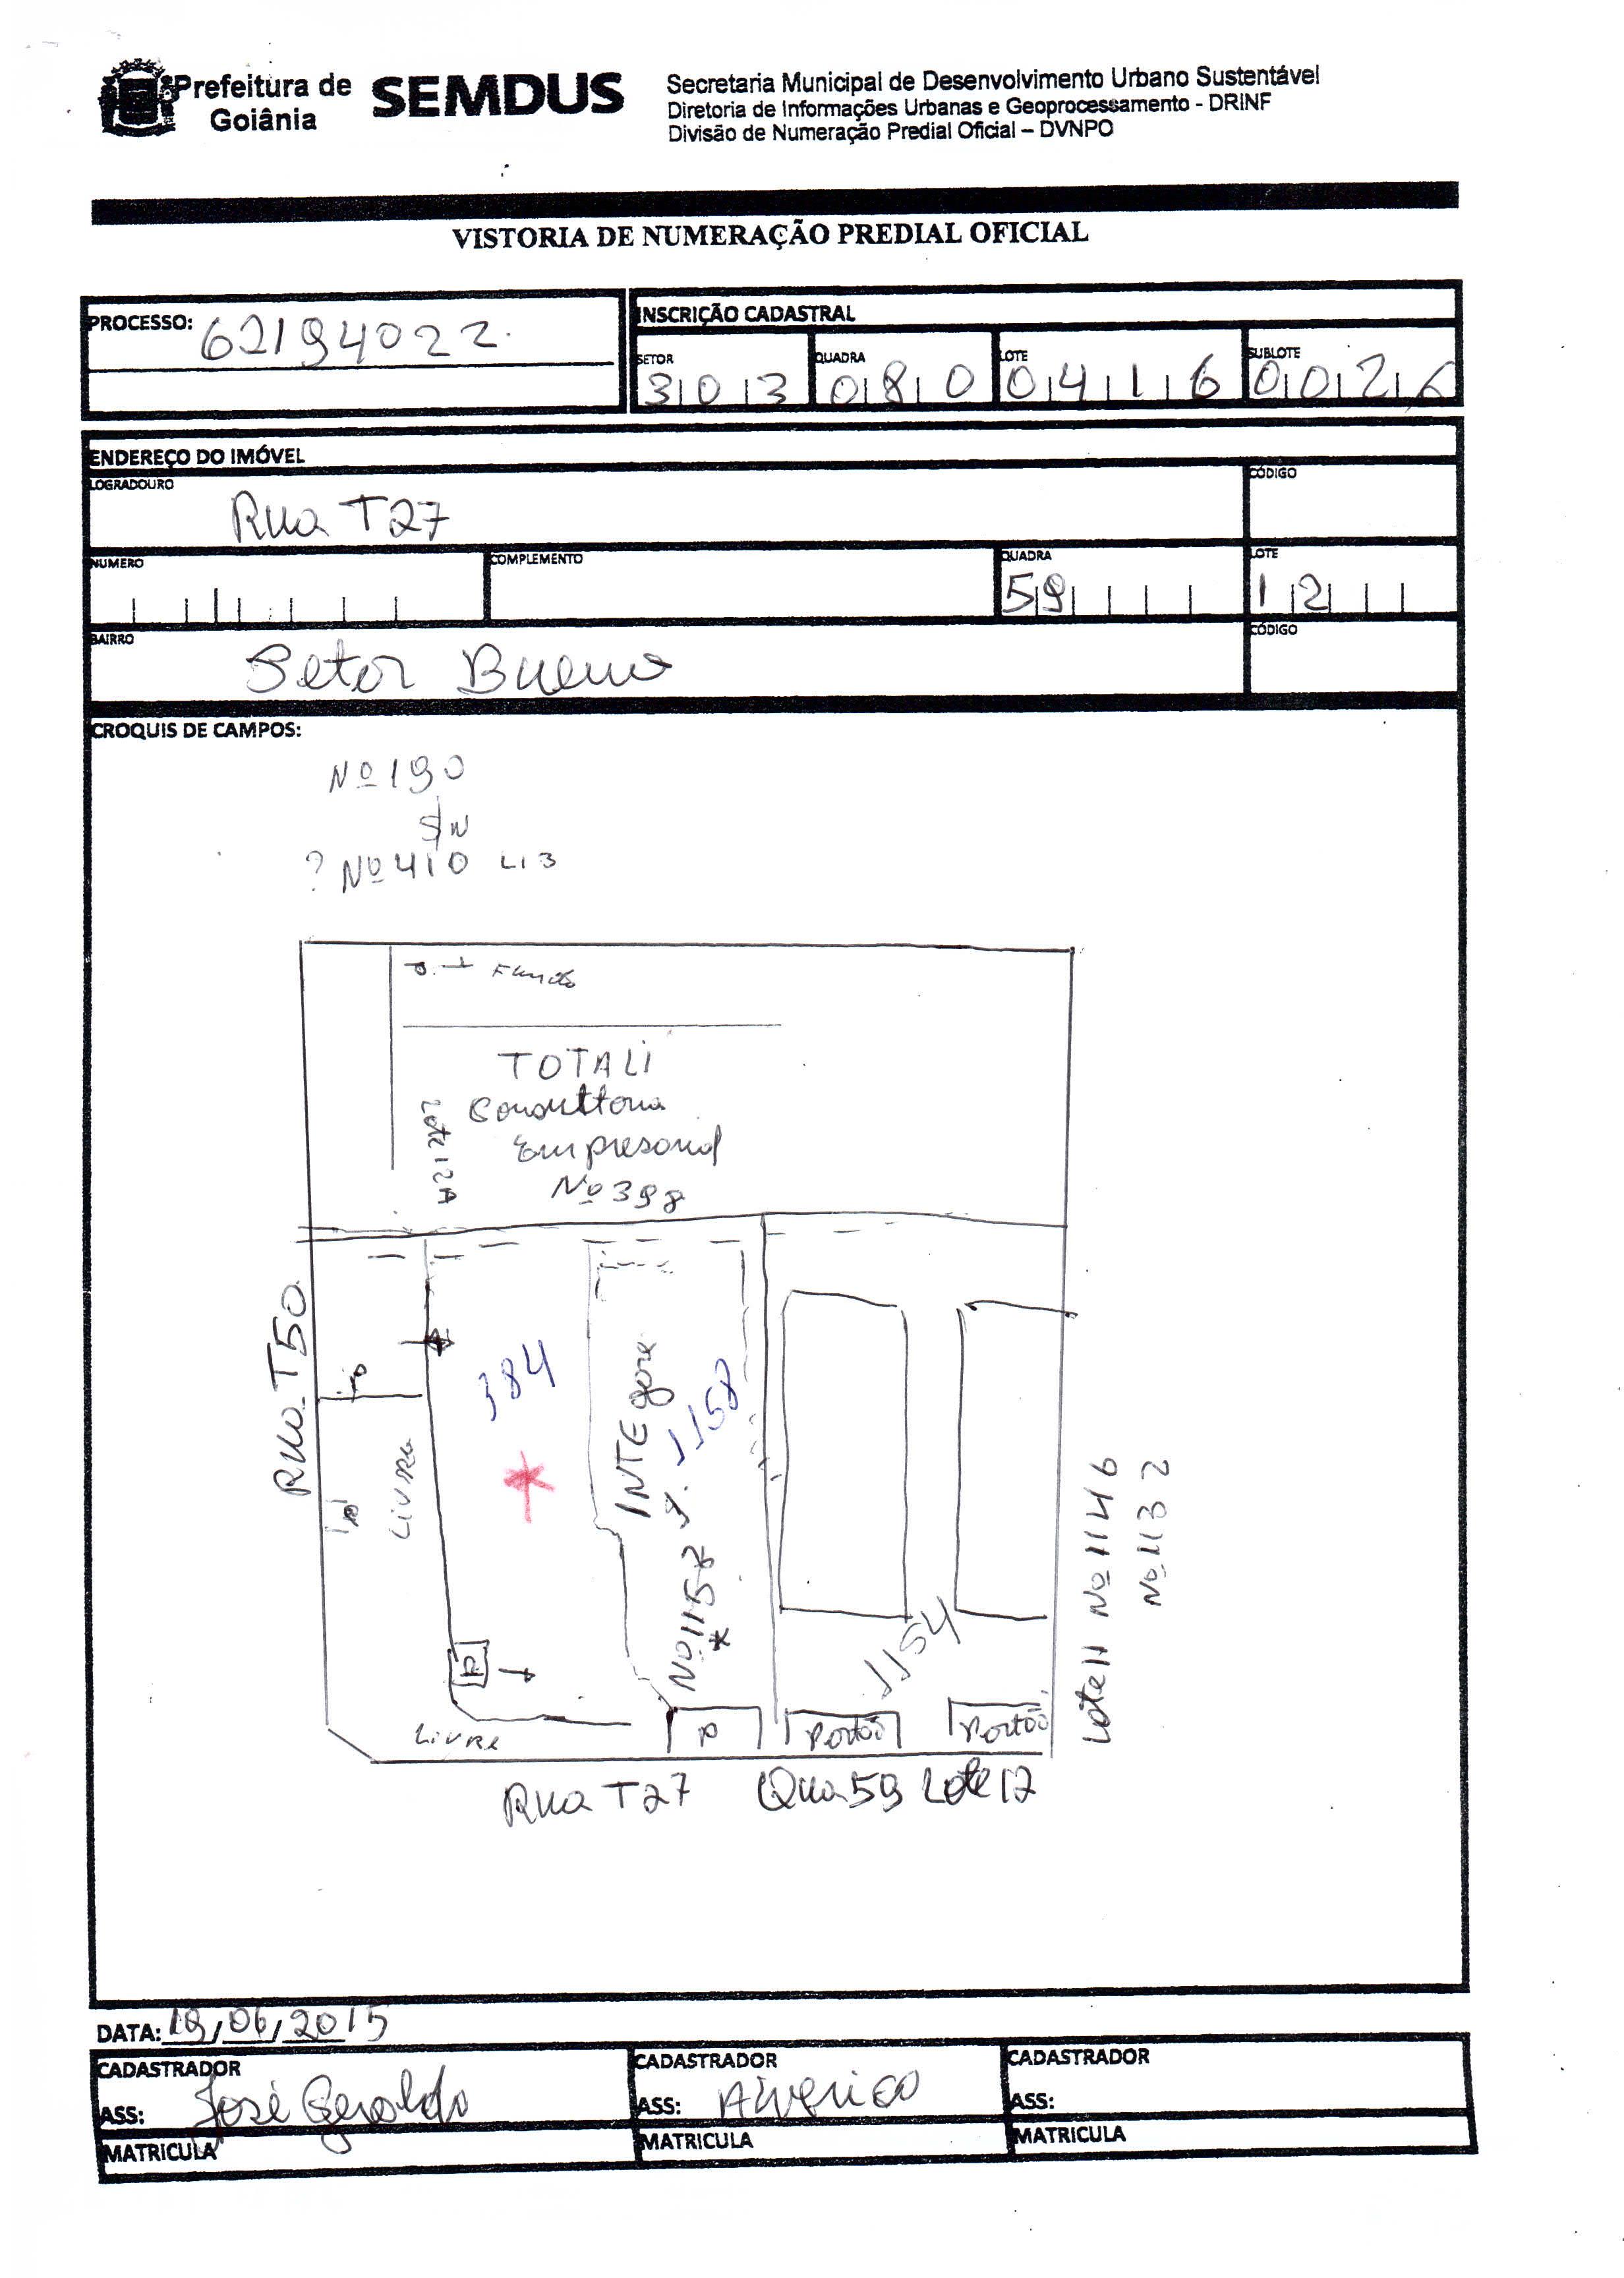 Prefeitura de Goiânia
SEMDUS
Secretaria Municipal de Desenvolvimento Urbano Sustentável
Diretoria de Informações Urbanas e Geoprocessamento - DRINF
Divisão de Numeração Predial Oficial – DVNPO
VISTORIA DE NUMERAÇÃO PREDIAL OFICIAL
PROCESSO: 62194022.
INSCRIÇÃO CADASTRAL
SETOR QUADRA LOTE SUBLOTE
303 080 0416 0026
ENDEREÇO DO IMÓVEL
LOGRADOURO CÓDIGO
Rua T27
NUMERO COMPLEMENTO QUADRA LOTE
59 12
BAIRRO CÓDIGO
Setor Bueno
CROQUIS DE CAMPOS:
Nº 190
S/N
? Nº 410 L13
Fundo
TOTALI
Consultoria
Empresarial
Nº 398
Lote 12A
Rua T50
Livre
384
INTEgore
1158
Nº 1158
1154
Lote 11 Nº 1146
Nº 1132
P
Livre
P
Portão
Portão
Rua T27 Qua 59 Lote 12
DATA: 19/06/2015
CADASTRADOR CADASTRADOR CADASTRADOR
ASS: José Geraldo ASS: ASS:
MATRICULA MATRICULA MATRICULA